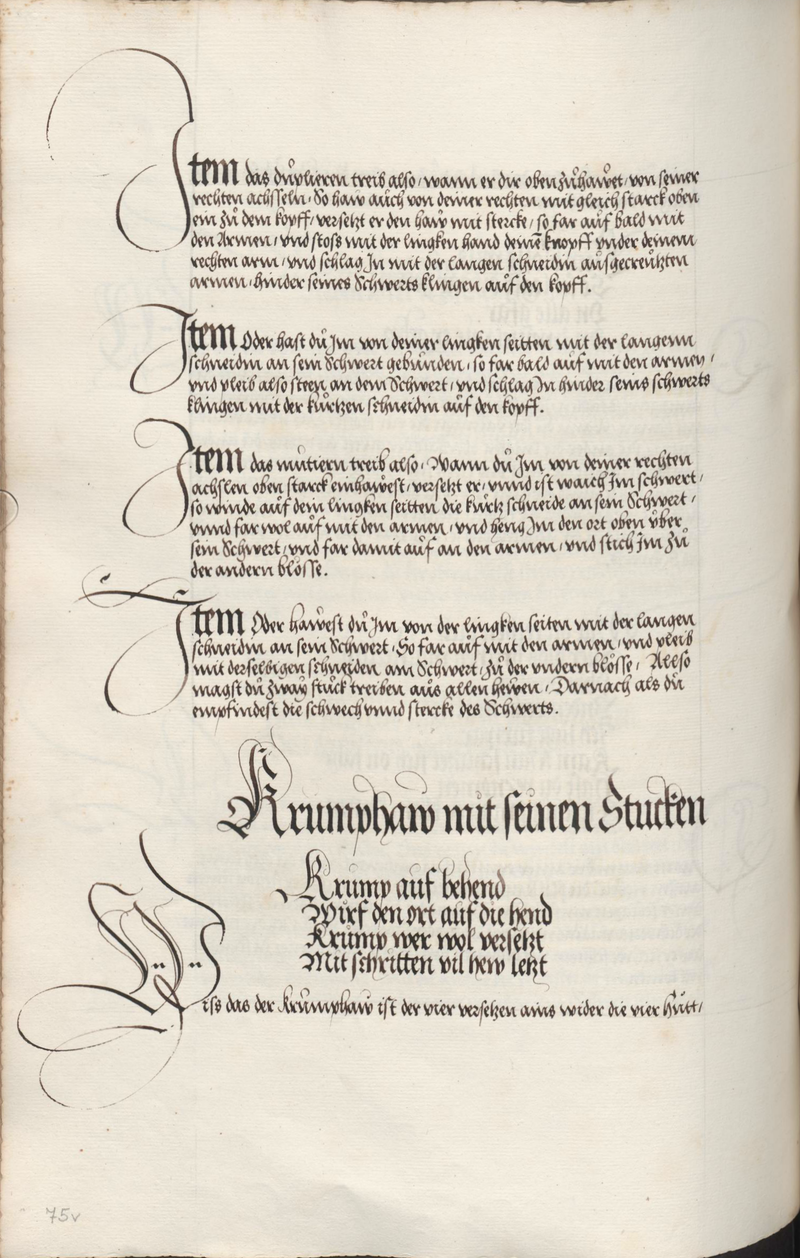 Item das duplieren treib also / wann er dir oben zůhawet / von seiner
rechten achsseln / So haw auch von deiner rechten mit gleich starck oben
ein zů dem kopff / versetzt er den haw mit stercke / so far auf bald mit
den Armen / vnd stoss mit der lingken hand deinē knopff vnder deinem
rechten arm / vnd schlag Jn mit der langen schneidin ausgecreutzten
armen / hinder seines Schwerts klingen auf den kopff.
Item Oder hast dů Jm von deiner lingken seitten mit der langenn
schneidin an sein Schwert gebunden / so far bald auf mit den armen /
vnd pleib also steen an dem Schwert / vnd schlag Jn hinder seins schwerts
klingen mit der kurtzen schneidin auf den kopff.
Item das mutiern treib also / Wann dů Jm von deiner rechten
achslen oben starck einhawest / versetzt er / vnnd ist waich Jm schwert /
so winde auf dein lingken seitten die kurtz schneide an sein Schwert /
vnnd far wol auf mit den armen / vnd heng Jm den ort oben über
sein Schwert / vnd far damit auf an den armen / vnd stich Jm zů
der andern blösse.
Item Oder hawest dů Jm von der lingken seiten mit der langen
schneidin an sein Schwert / So far auf mit den armen / vnd pleib
mit derselbigen schneiden am Schwert / zů der vndern blösse / Allso
magst dů zway stuck treiben aus allen hewen / Darnach als dů
empfindest die schwech vnnd stercke des Schwerts.
Krumphaw mit seinen Stucken
Krump auf behend
Wirf den ort auf die hend
Krump wer wol versetzt
Mit schritten vil hew letzt
Wiss das der Krumphaw ist der vier versetzen ains wider die vier Hutt /
75v